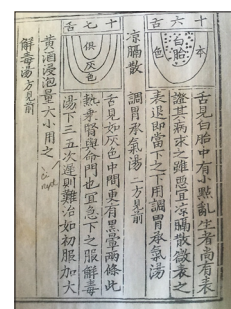 十六舌
本色
白胎
舌見白胎中有小點亂生者尚有表
證其病來之雖惡宜凉膈散微表之
表退即當下之下用調胃承氣湯
凉膈散 調胃承氣湯方見前
十七舌
俱灰色
舌見如灰色中間更有黑暈兩條此
熱乘腎與命門也宜急下之服解毒
湯下三五次遲則難治如初服加大
黃酒浸泡量大小用之
解毒湯方見前